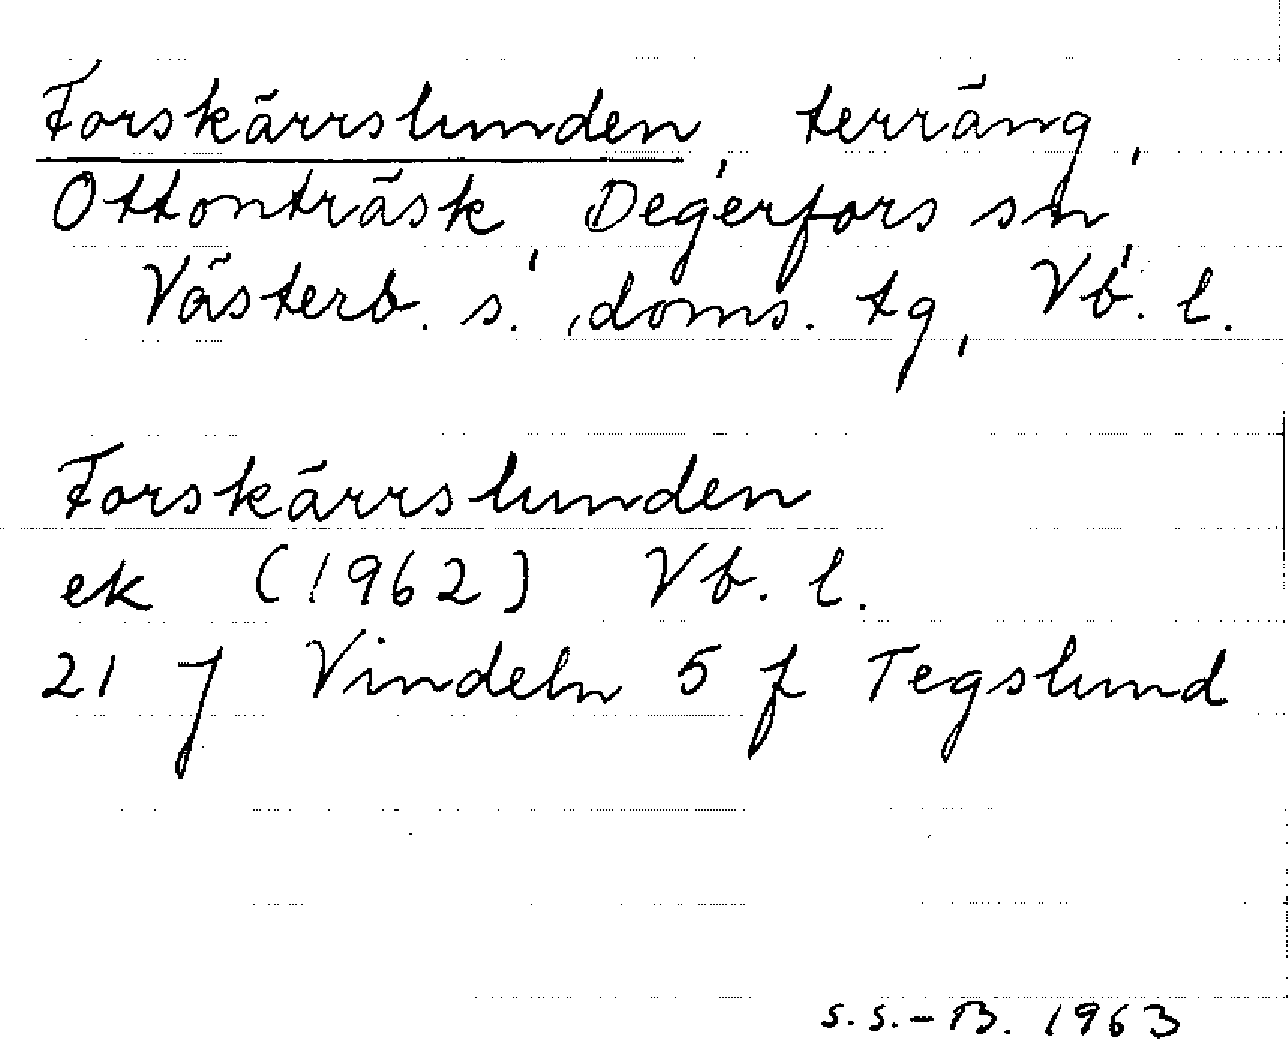 Forskärrslunden, terräng,
Ottonträsk, Degerfors sn,
Västerb. s. doms. tg, Vb. l.
Forskärrslunden
ek (1962) Vb. l.
21 J Vindeln 5 f Tegslund
S.S.-B. 1963